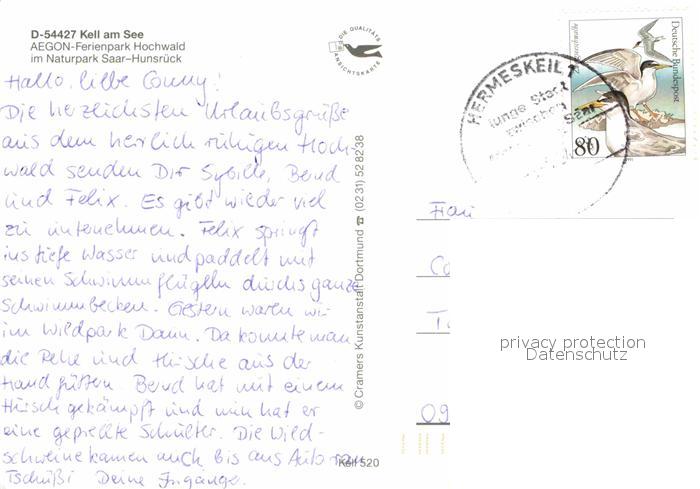 D-54427 Kell am See
AEGON-Ferienpark Hochwald
im Naturpark Saar-Hunsrück
DIE QUALITÄTS
ANSICHTSKARTE
Hallo, liebe Conny!
Die herzlichsten Urlaubsgrüße
aus dem herrlich ruhigen Hoch-
wald senden Dir Sybille, Bernd
und Felix. Es gibt wieder viel
zu unternehmen. Felix springt
ins tiefe Wasser und paddelt mit
seinen Schwimmflügeln durchs ganze
Schwimmbecken. Gestern waren wir
im Wildpark Daun. Da konnte man
die Rehe und Hirsche aus der
Hand füttern. Bernd hat mit einem
Hirsch gekämpft und nun hat er
eine geprellte Schulter. Die Wild-
schweine kamen auch bis ans Auto ran
Tschüßi Deine
© Cramers Kunstanstalt Dortmund ☎ (0231) 528238
Kell 520
HERMESKEIL 1
Junge Stadt
zwischen
Saar
Deutsche Bundespost
80
Frau
Co
09
privacy protection
Datenschutz